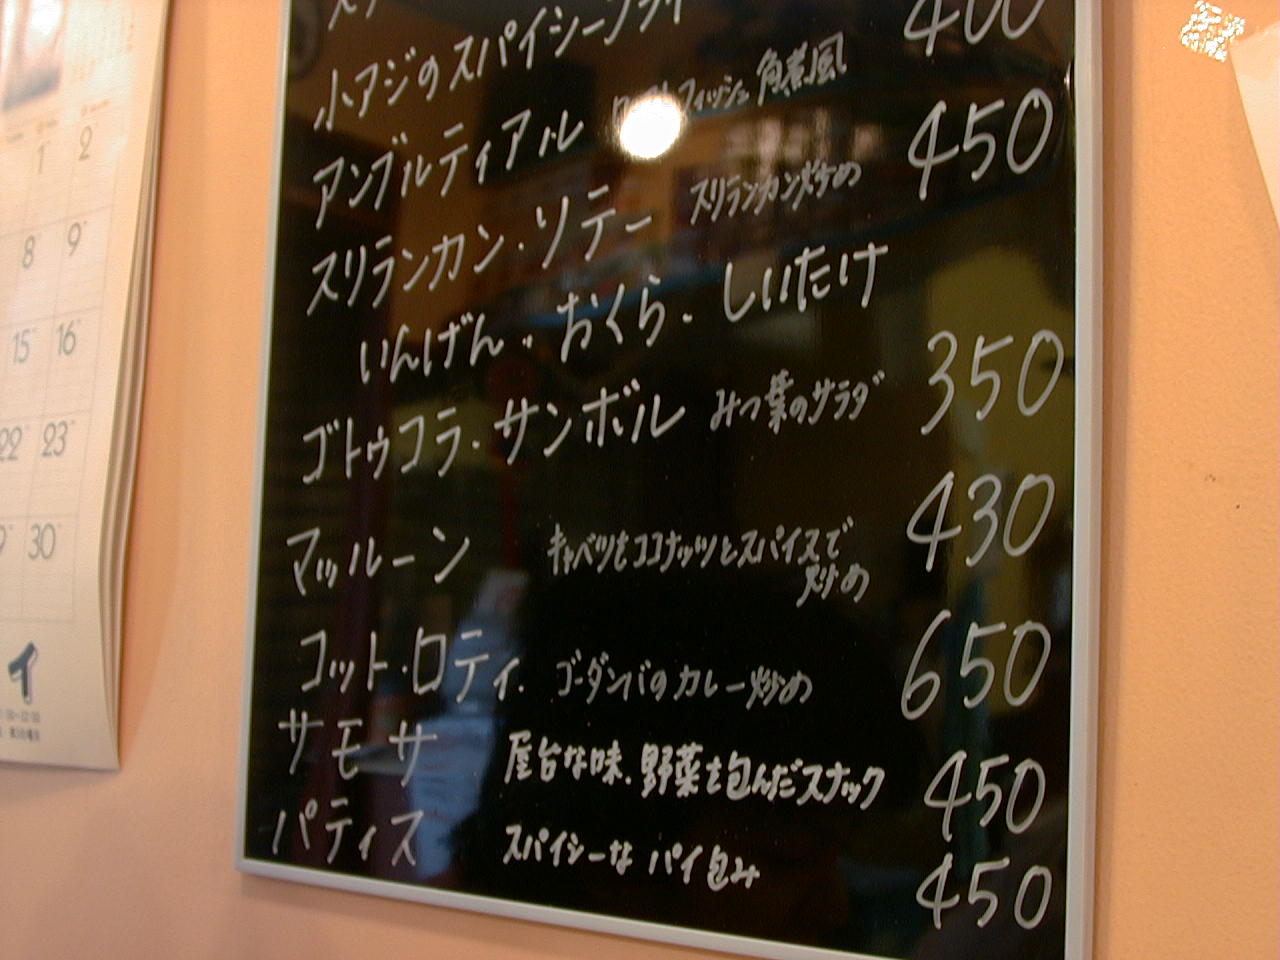 小アジのスパイシーフライ 400
アンブルティアル フィッシュ 角煮風 450
スリランカン・ソテー スリランカン炒め
いんげん・おくら・しいたけ 350
ゴトゥコラ・サンボル みつ葉のサラダ 430
マッルーン キャベツをココナッツとスパイスで
炒め
コット・ロティ ゴーダンバのカレー炒め 650
サモサ 屋台な味、野菜を包んだスナック 450
パティス スパイシーな パイ包み 450
1 2
8 9
15 16
22 23
30
イ